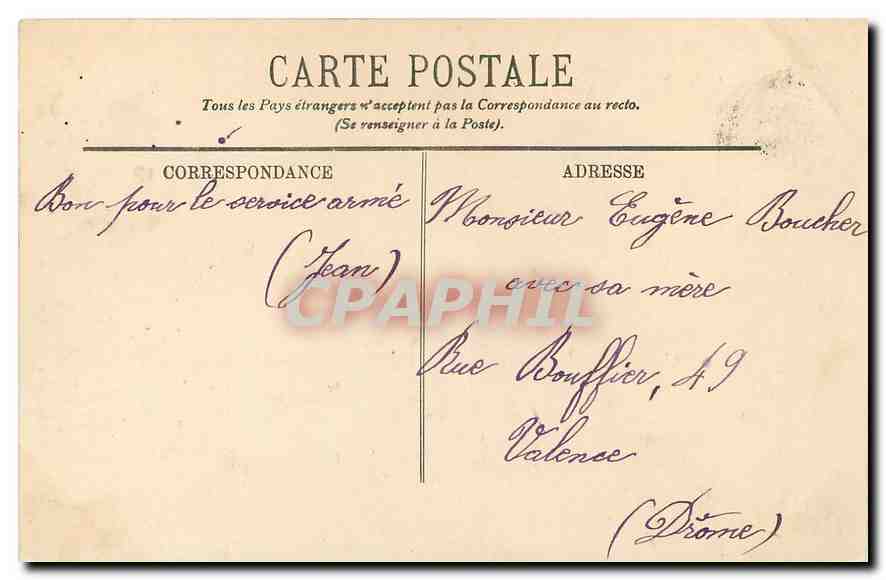 CARTE POSTALE
Tous les Pays étrangers n'acceptent pas la Correspondance au recto.
(Se renseigner à la Poste).
CORRESPONDANCE
Bon pour le service armé
(Jean)
ADRESSE
Monsieur Eugène Boucher
avec sa mère
Rue Bouffier, 49
Valence
(Drôme)
CPAPHIL